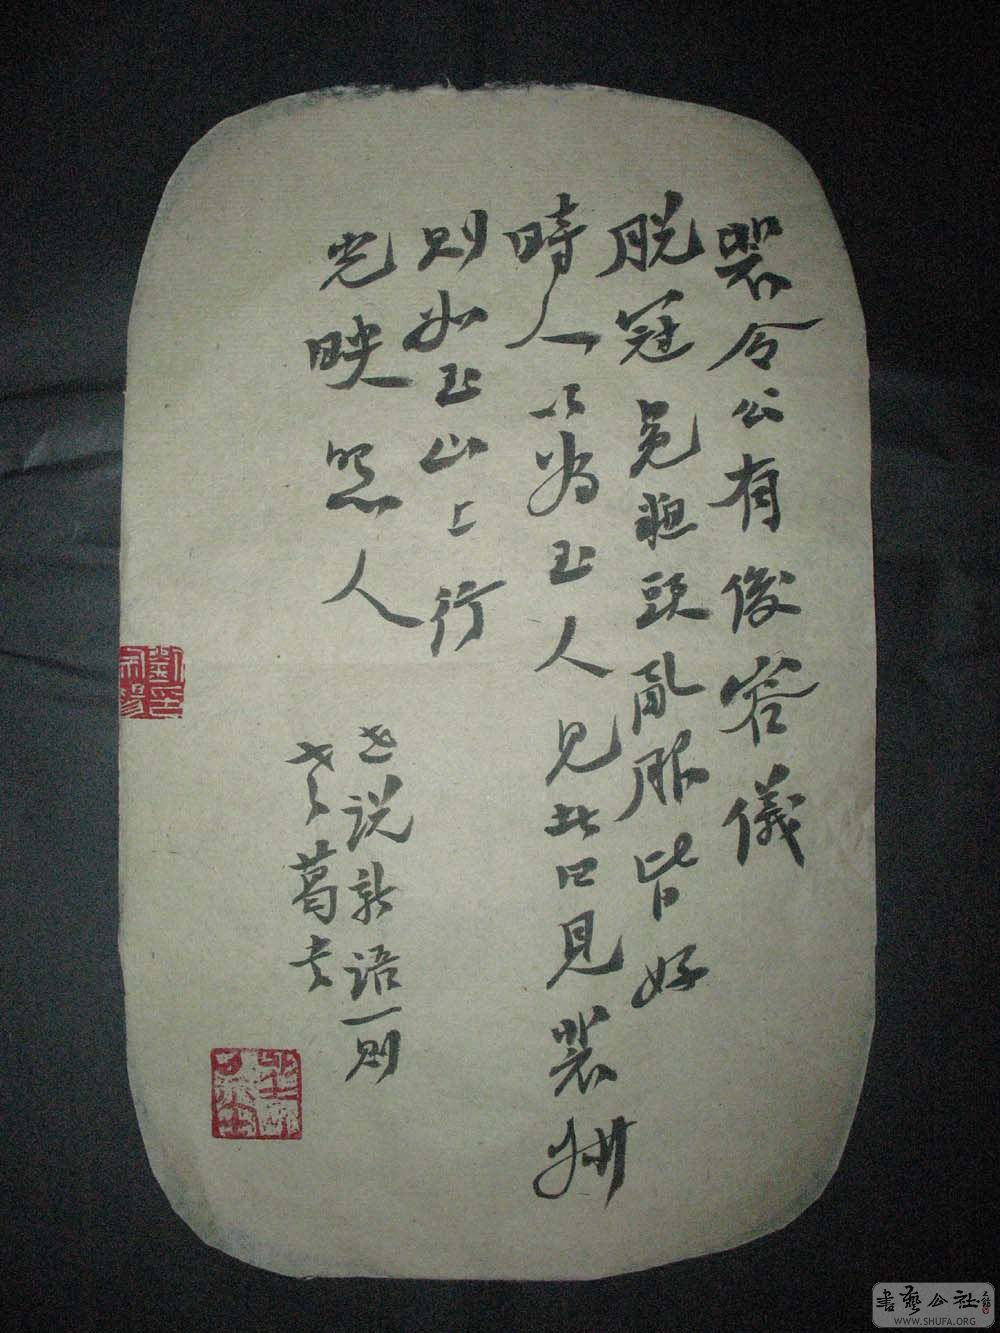 裴令公有俊容儀
脫冠冕粗頭亂服皆好
時人以為玉人見者曰見裴叔
則如玉山上行
光映照人
世说新语一则
葛书
書藝公社
WWW.SHUFA.ORG